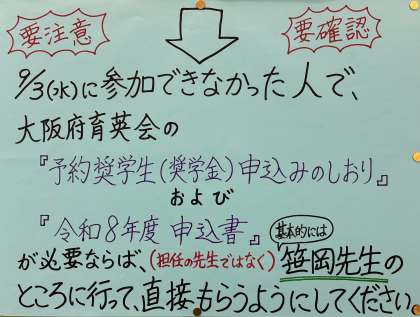 要注意
要確認
9/3(水)に参加できなかった人で、
大阪府育英会の
『予約奨学生(奨学金)申込みのしおり』
および
『令和8年度 申込書』
が必要ならば、(担任の先生ではなく)基本的には笹岡先生の
ところに行って、直接もらうようにしてください。